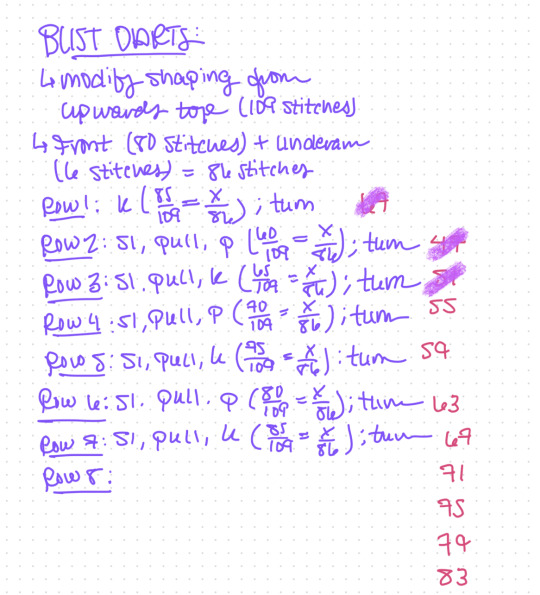 BUST DARTS:
↳ modify shaping from
upwards tope (109 stitches)
↳ Front (80 stitches) + underarm
(6 stitches) = 86 stitches
Row 1: k (85/109 = x/86); turn
Row 2: sl, pull, p (60/109 = x/86); turn
Row 3: sl. pull, k (65/109 = x/86); turn
Row 4: sl, pull, p (70/109 = x/86); turn 55
Row 5: sl, pull, k (75/109 = x/86): turn 59
Row 6: sl. pull. p (80/109 = x/86); turn 63
Row 7: sl, pull, k (85/109 = x/86); turn 67
Row 8:
71
75
79
83